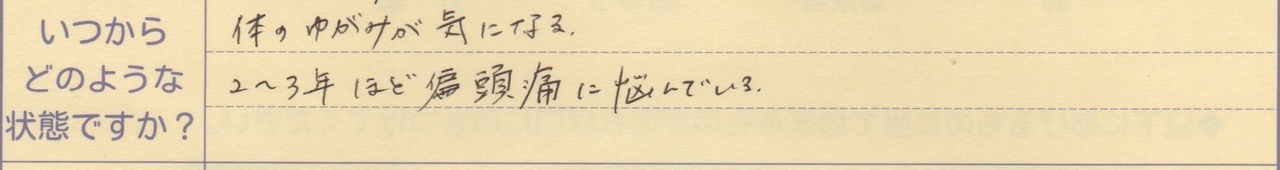 いつから
どのような
状態ですか?
体のゆがみが気になる.
2～3年ほど偏頭痛に悩んでいる.